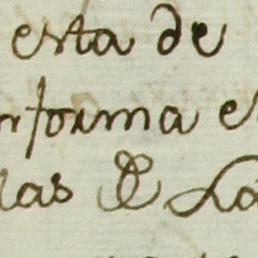 esta de
nforma e
las & La